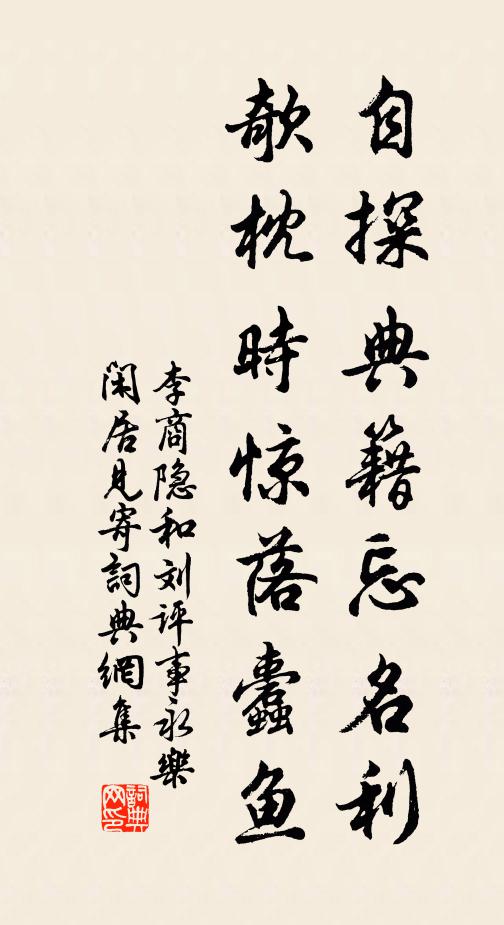 自探典籍忘名利
欹枕時惊落蠹鱼
李商隐和刘评事永樂
闲居見寄詞典網集
詞典
网印